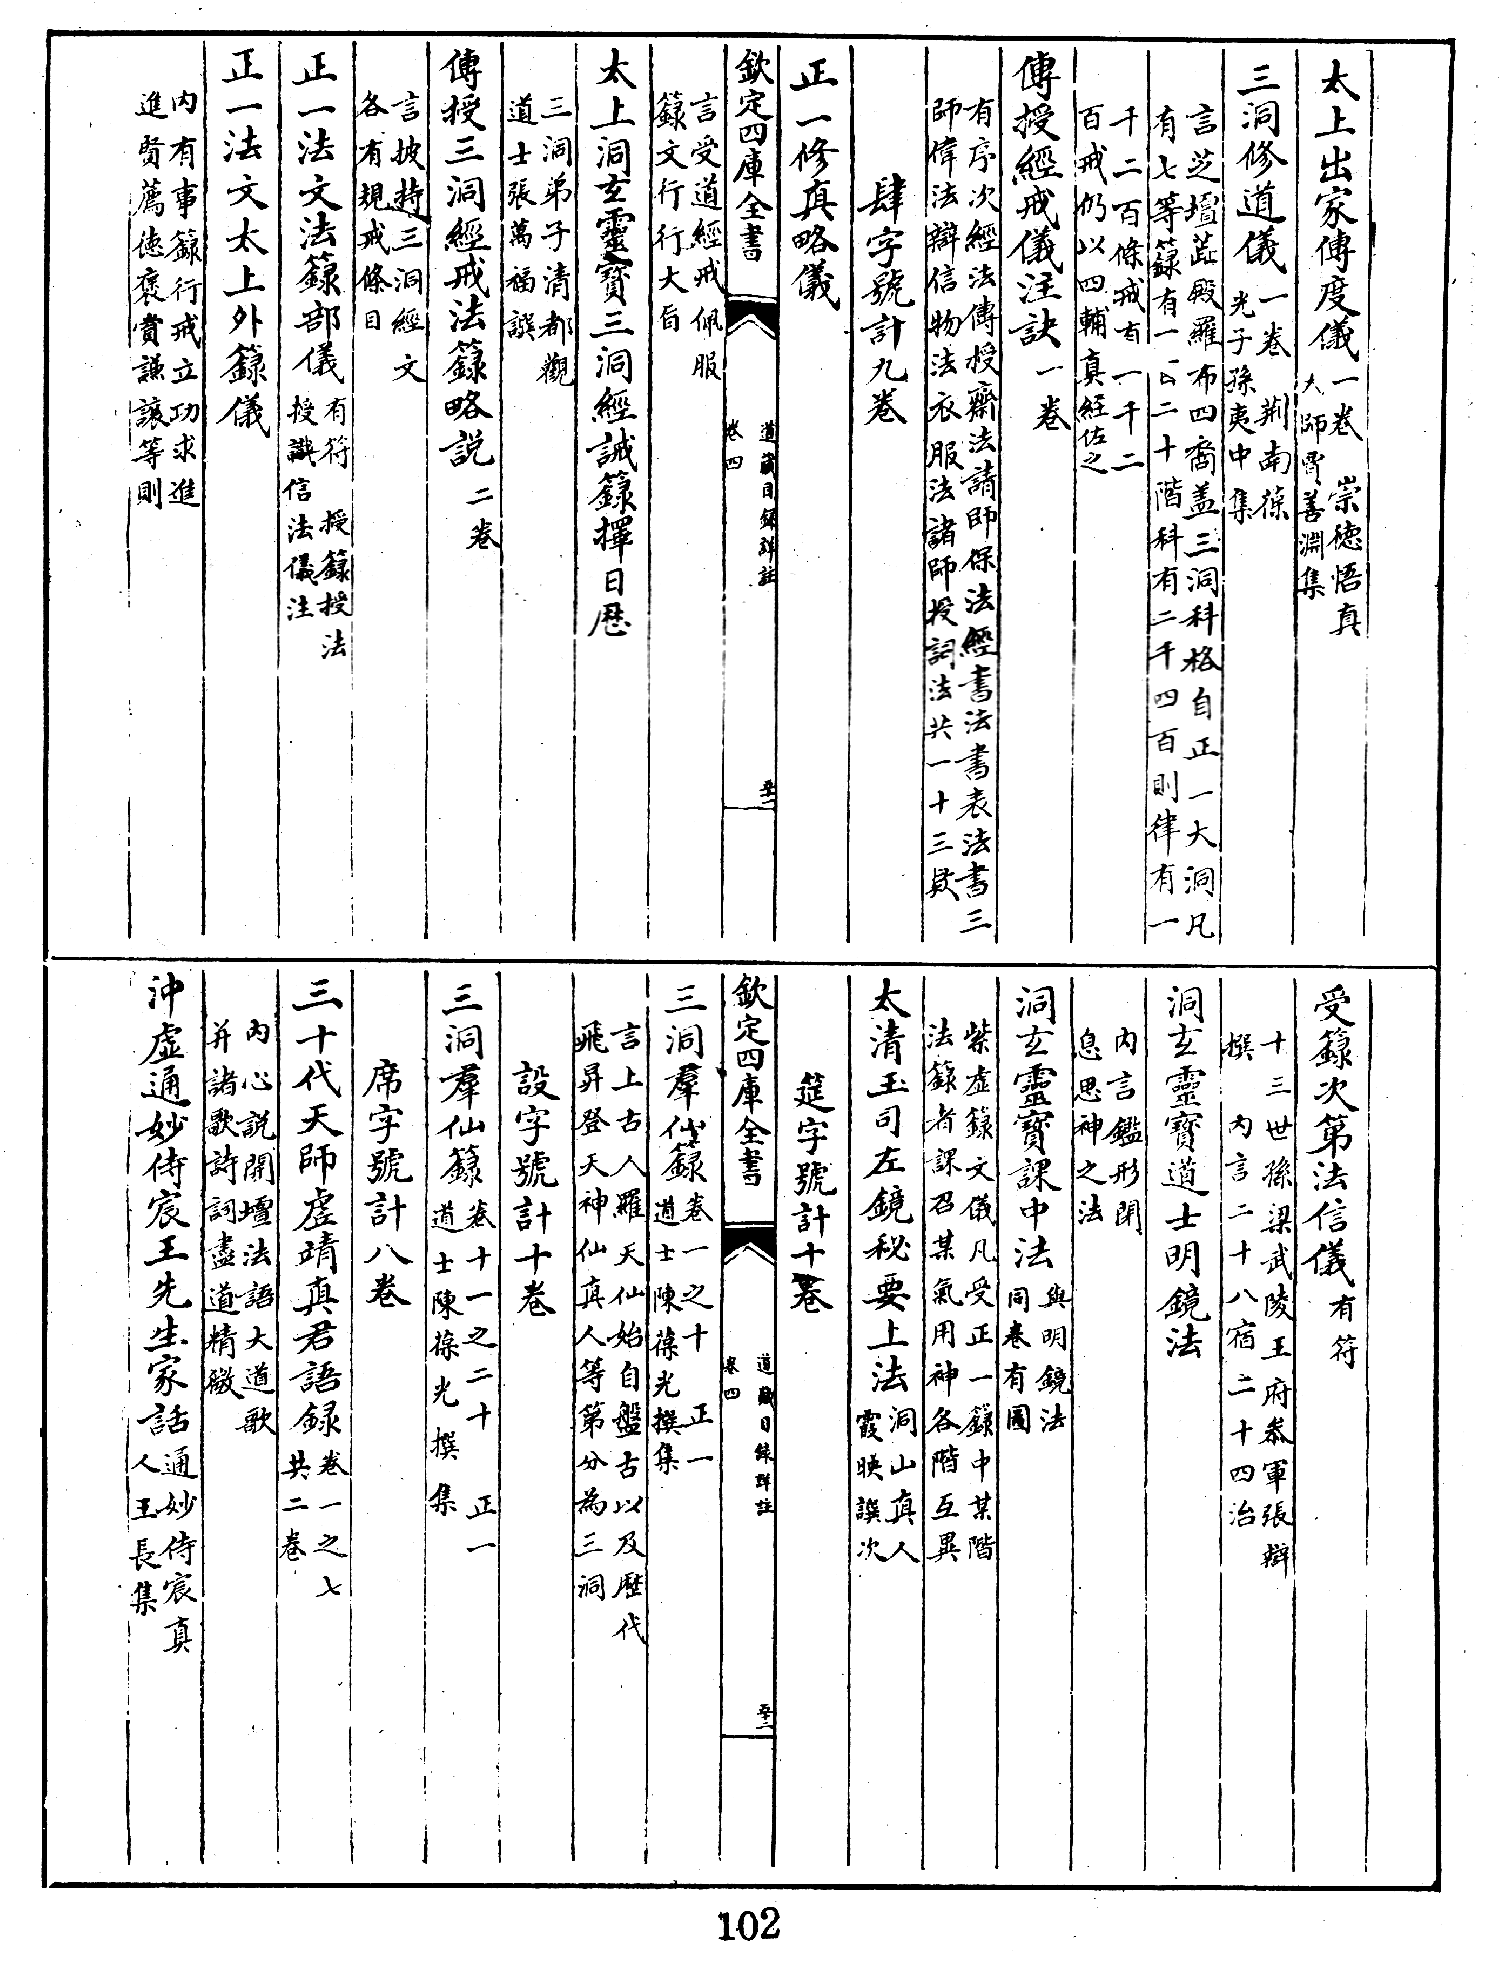 太上出家傳度儀一卷 崇德悟真
大師賈善淵集
三洞修道儀一卷 荆南葆
光子孫夷中集
言芝壇蘂殿羅布四裔盖三洞科格自正一大洞凡
有七等籙有一百二十階科有二千四百則律有一
千二百條戒有一千二
百戒仍以四輔真經佐之
傳授經戒儀注訣一卷
有序次經法傳授齋法請師保法經書法書表法書三
師偉法辯信物法衣服法諸師投詞法共一十三欵
肆字號計九卷
正一修真略儀
欽定四庫全書
道藏目録詳註
卷四
五十一
言受道經戒佩服
籙文行行大旨
太上洞玄靈寶三洞經誡籙擇日歴
三洞弟子清都觀
道士張萬福譔
傳授三洞經戒法籙略説二卷
言披持三洞經文
各有規戒條目
正一法文法籙部儀有符 授籙授法
授職信法儀注
正一法文太上外籙儀
内有事籙行戒立功求進
進賢薦德褒賞謙讓等則
受籙次第法信儀有符
十三世孫梁武陵王府叅軍張辯
撰 内言二十八宿二十四治
洞玄靈寶道士明鏡法
内言鑑形閉
息思神之法
洞玄靈寶課中法與明鏡法
同卷有圖
紫虛籙文儀凡受正一籙中某階
法籙者課召某氣用神各階互異
太清玉司左鏡秘要上法洞山真人
霞映譔次
筵字號計十卷
欽定四庫全書
道藏目録詳註
卷四
五十二
三洞羣仙籙卷一之十 正一
道士陳葆光撰集
言上古人羅天仙始自盤古以及歷代
飛昇登天神仙真人等第分為三洞
設字號計十卷
三洞羣仙籙卷十一之二十 正一
道士陳葆光撰集
席字號計八卷
三十代天師虛靖真君語録卷一之七
共二卷
内心説開壇法語大道歌
并諸歌詩詞盡道精微
沖虛通妙侍宸王先生家話通妙侍宸真
人王長集
102